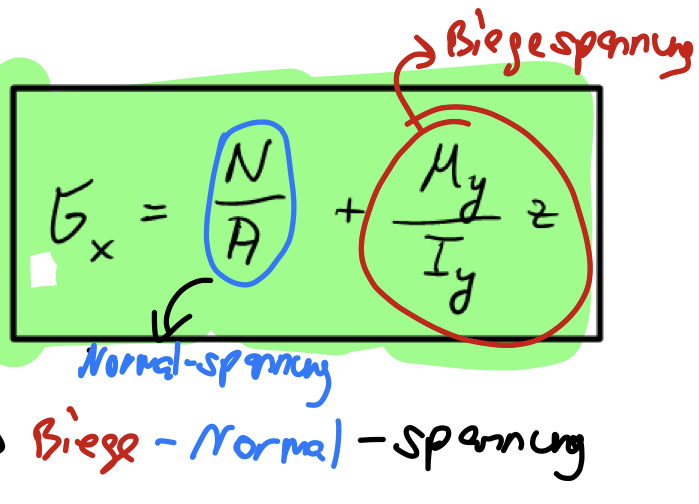 Biegespannung
σₓ = N/A + M_y/I_y z
Normal-spannung
Biege - Normal - spannung